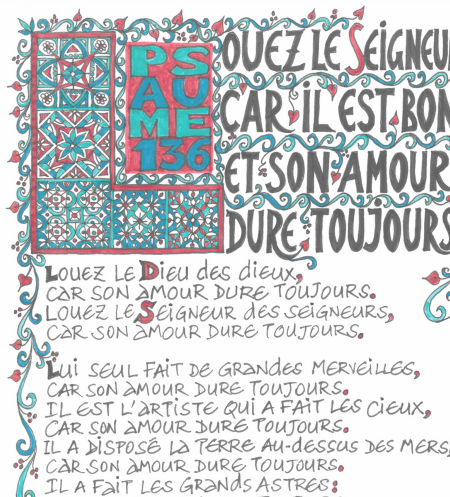 PS
AU
ME
136
LOUEZ LE SEIGNEU
CAR IL EST BON
ET SON AMOUR
DURE TOUJOURS
LOUEZ LE DIEU des dieux,
CAR SON AMOUR DURE TOUJOURS.
LOUEZ LE SEIGNEUR des SEIGNEURS,
CAR SON AMOUR DURE TOUJOURS.
LUI SEUL FAIT DE GRANDES MERVEILLES,
CAR SON AMOUR DURE TOUJOURS.
IL EST L'ARTISTE QUI A FAIT LES CIEUX,
CAR SON AMOUR DURE TOUJOURS.
IL A DISPOSÉ LA TERRE AU-DESSUS DES MERS,
CAR SON AMOUR DURE TOUJOURS.
IL A FAIT LES GRANDS ASTRES: